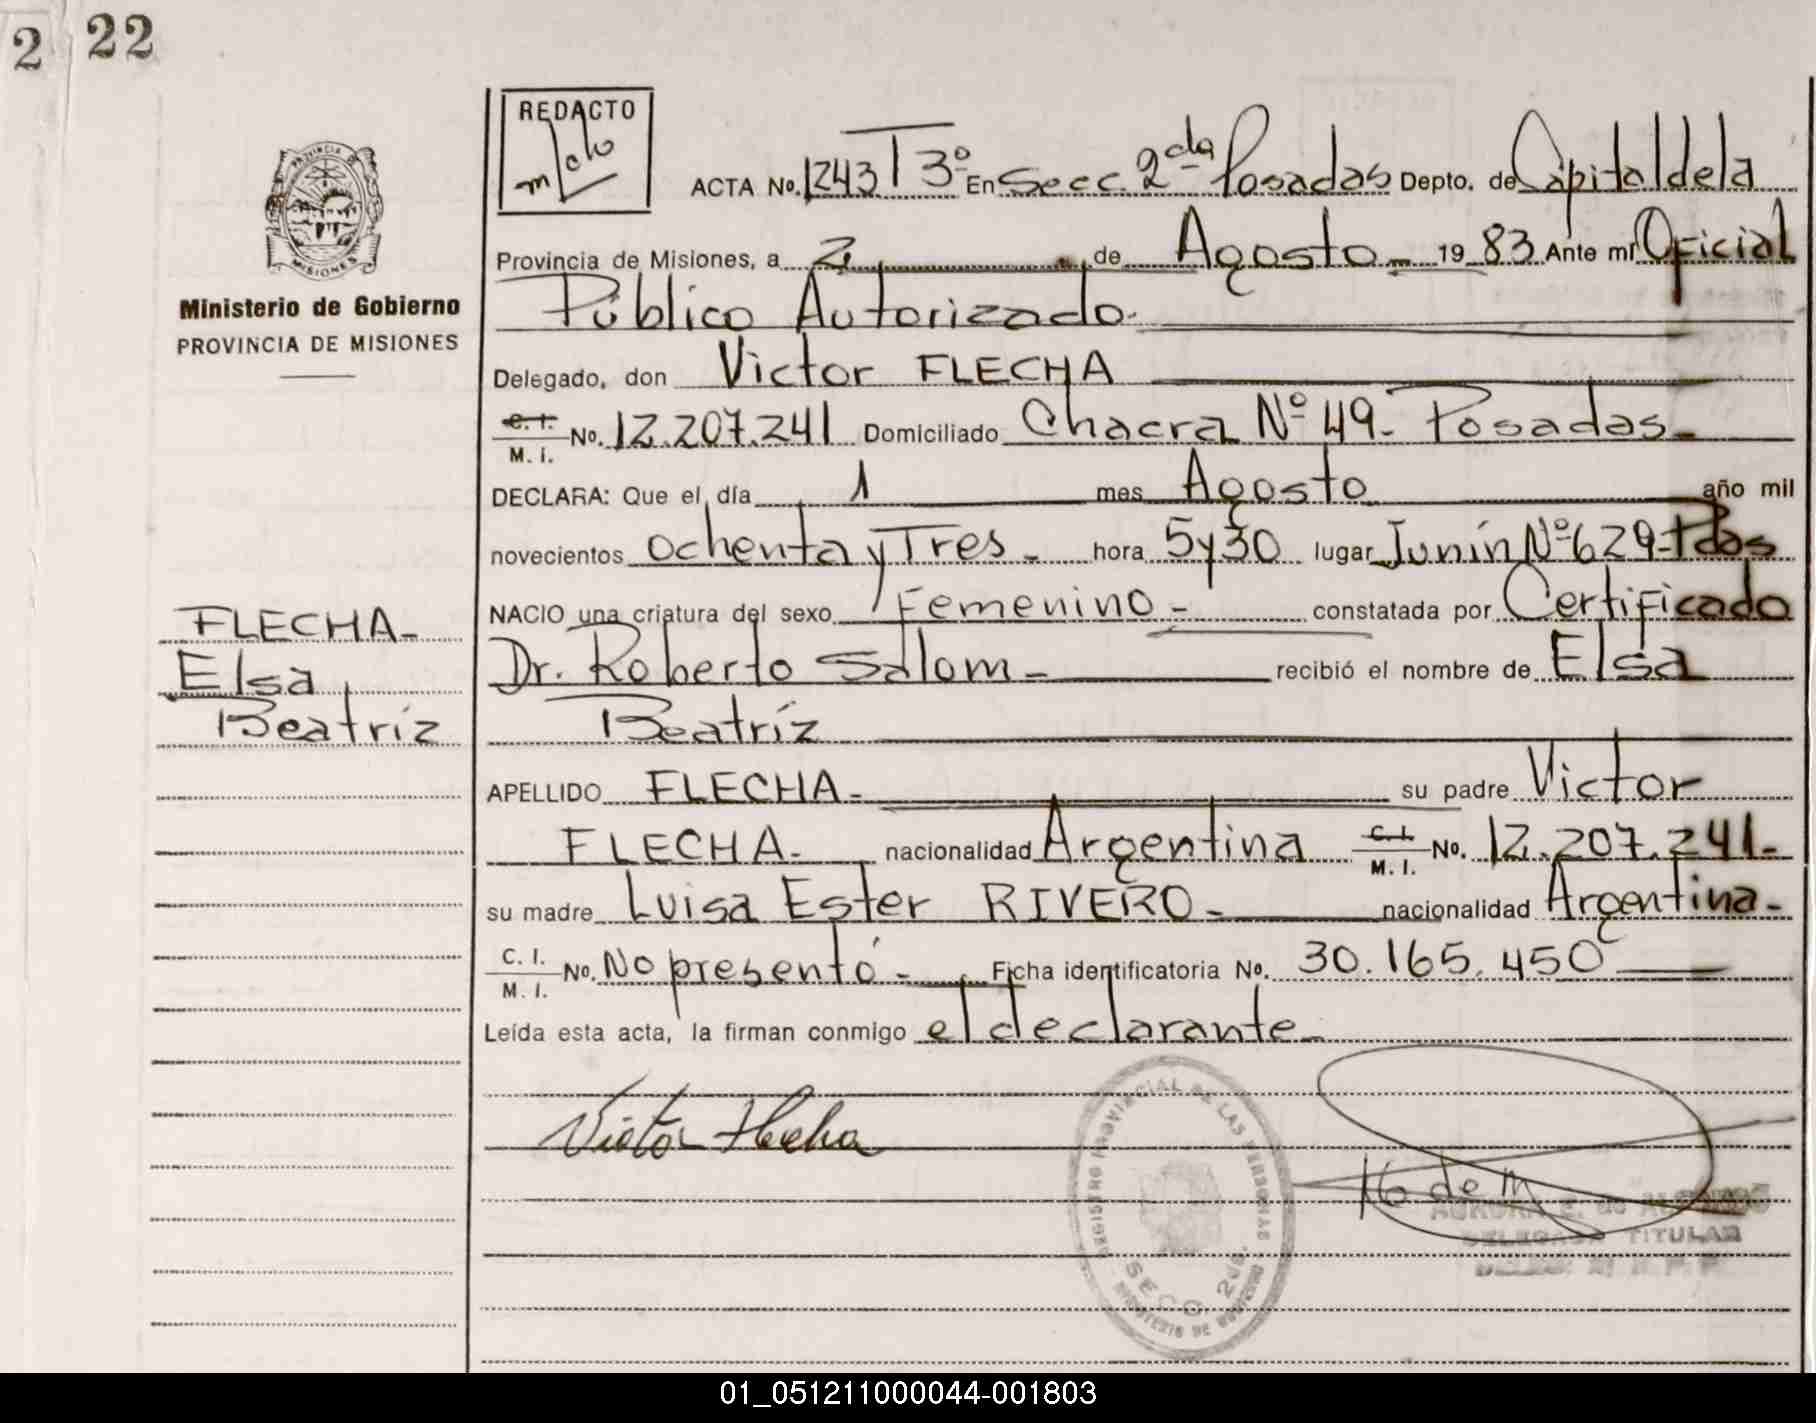 2 22
REDACTO
ACTA No. 1243 T 3º En Secc. 2da Posadas Depto. de Capital de la
Provincia de Misiones, a 2 de Agosto 1983 Ante mí Oficial
Público Autorizado.
PROVINCIA DE
MISIONES
Ministerio de Gobierno
PROVINCIA DE MISIONES
Delegado, don Victor FLECHA
C. I. M. I. No. 12.207.241 Domiciliado Chacra Nº 49- Posadas-
DECLARA: Que el día 1 mes Agosto año mil
novecientos ochenta y Tres - hora 5y30 lugar Junín Nº 629-Pdas
NACIO una criatura del sexo Femenino - constatada por Certificado
Dr. Roberto Salom - recibió el nombre de Elsa
Beatríz
FLECHA-
Elsa
Beatríz
APELLIDO FLECHA- su padre Victor
FLECHA- nacionalidad Argentina C. I. M. I. No. 12.207.241-
su madre Luisa Ester RIVERO- nacionalidad Argentina-
C. I. M. I. No. No presentó- Ficha identificatoria No. 30.165.450
Leída esta acta, la firman conmigo el declarante-
Victor Flecha
REGISTRO PROVINCIAL DE LAS PERSONAS
SECC. 2da.
MINISTERIO DE GOBIERNO
DELEGADO TITULAR
01_051211000044-001803